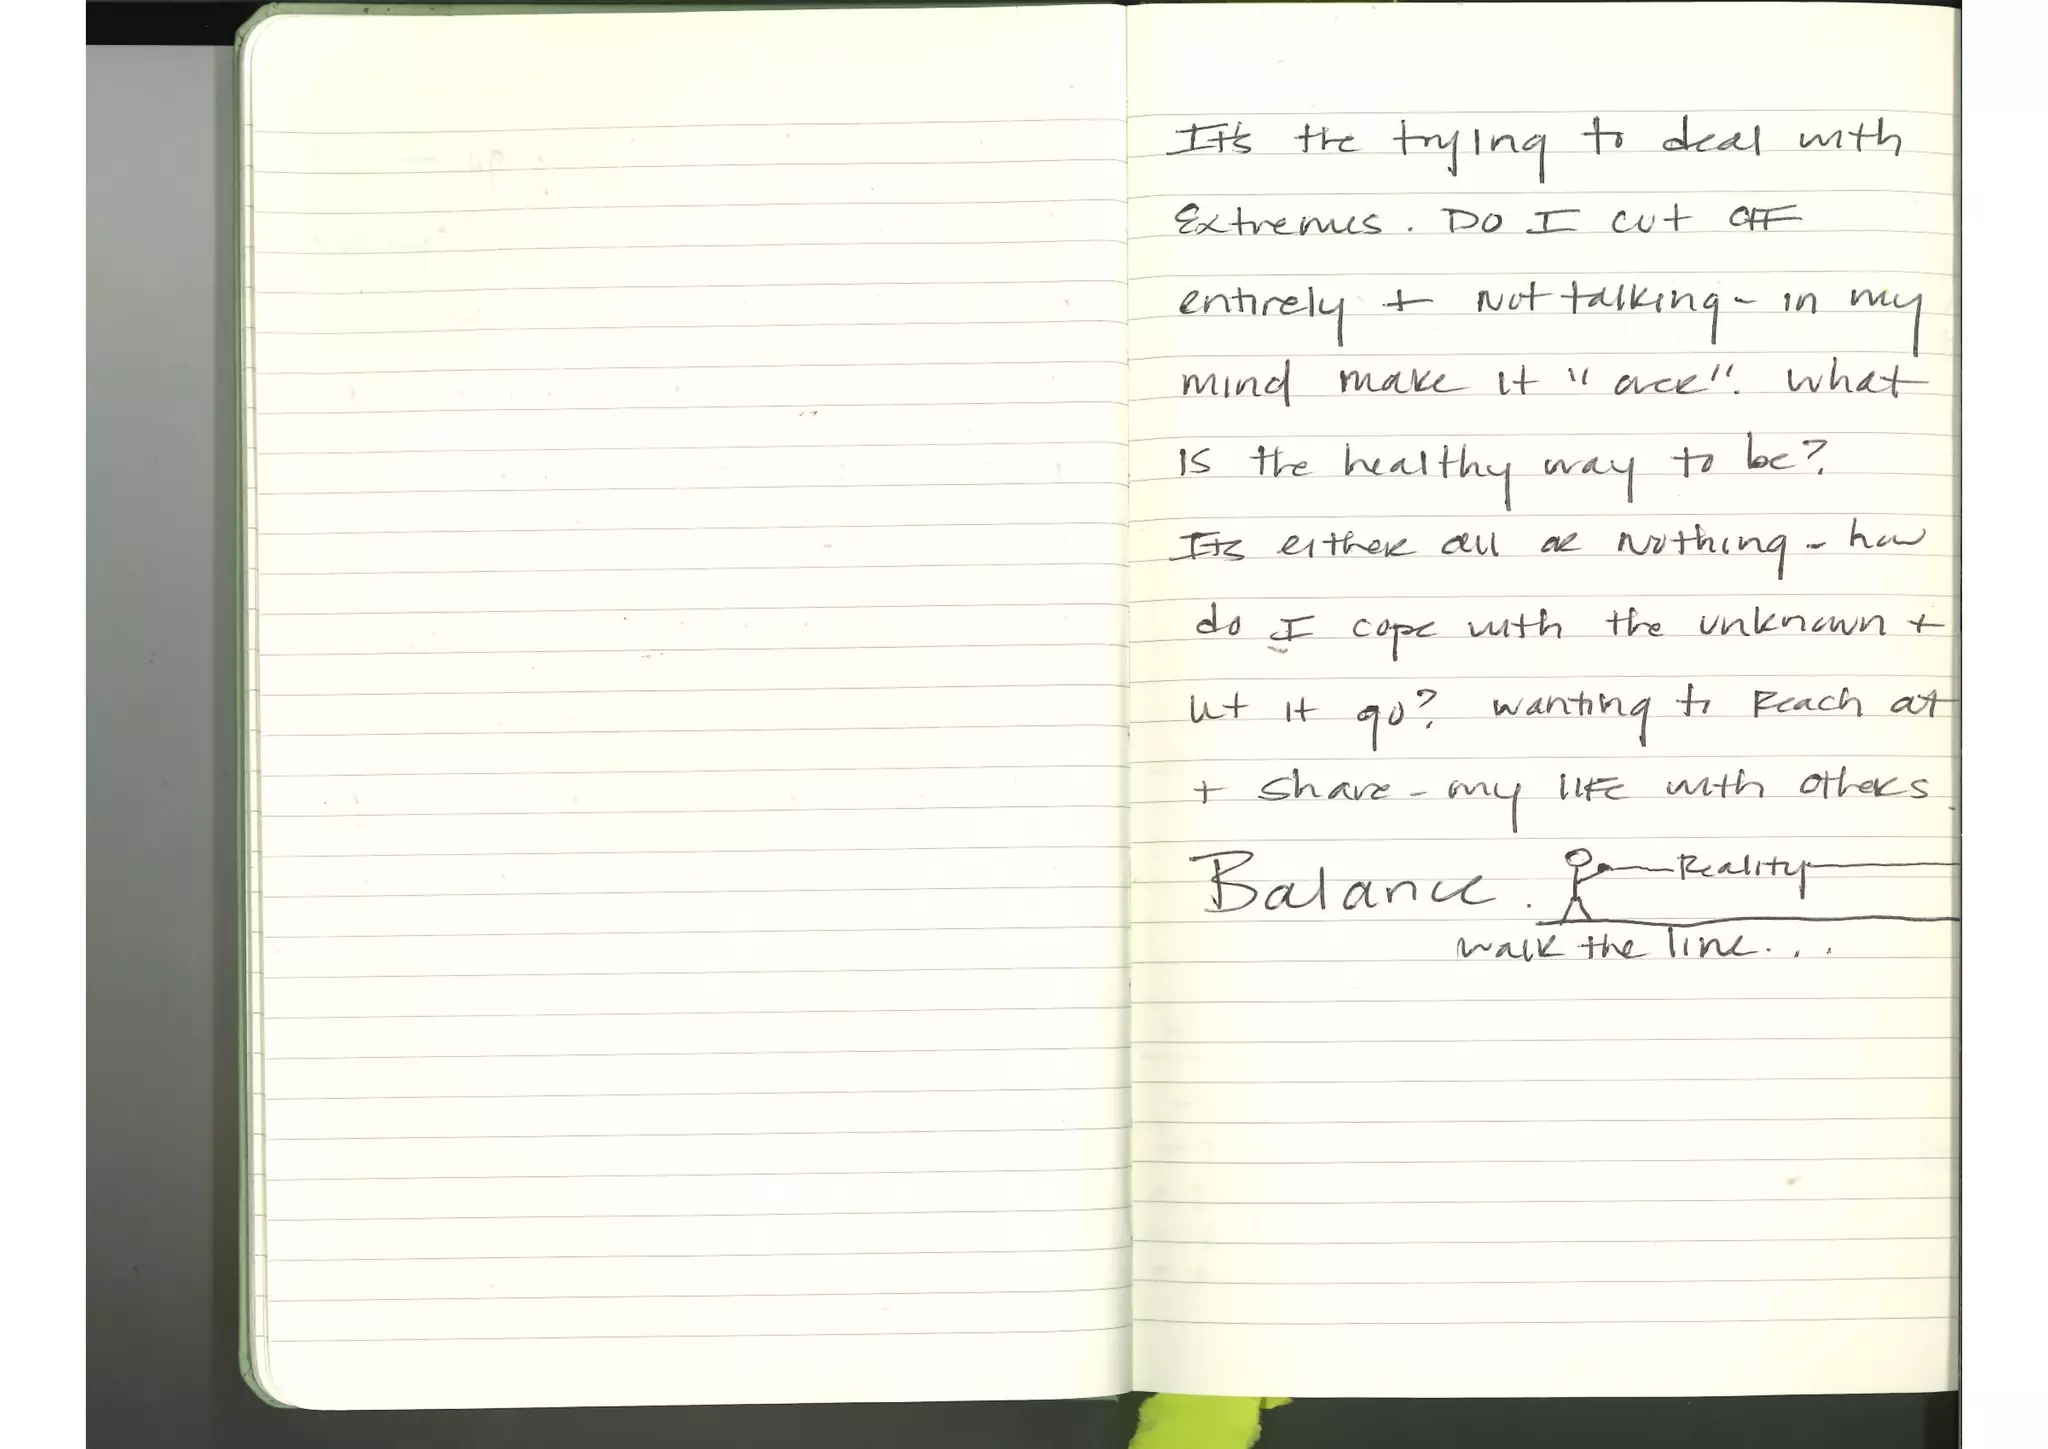 It's the trying to deal with
Extremes. Do I cut off
entirely + not talking - in my
mind make it "over". What
is the healthy way to be?
Its either all or nothing - how
do I cope with the unknown +
let it go? wanting to Reach out
+ share - my life with others.
Balance. Reality
walk the line...